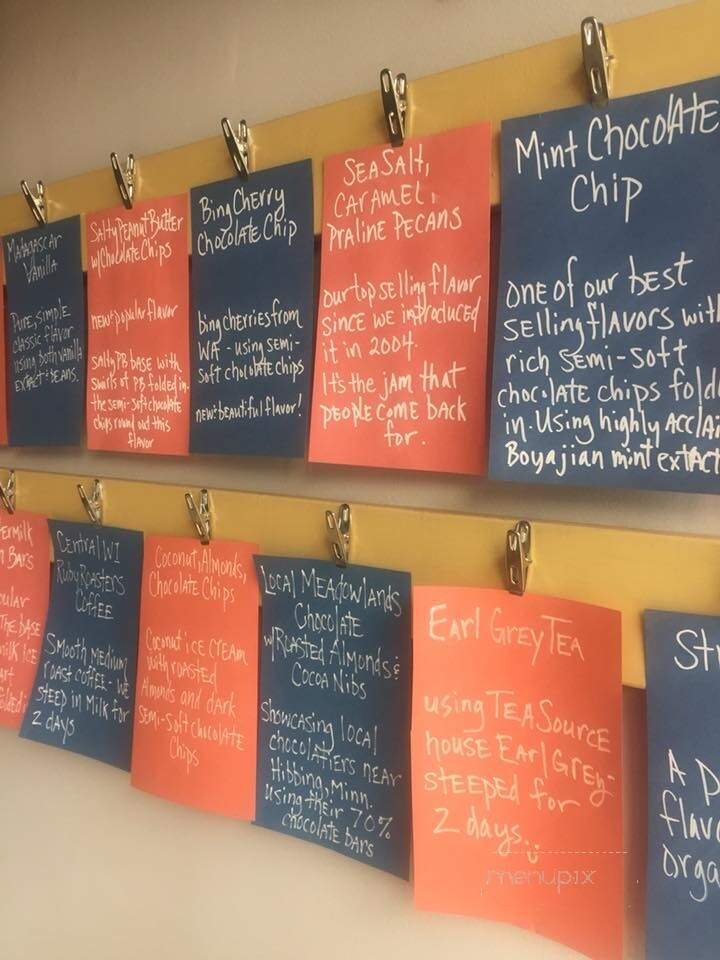 Madagascar
Vanilla
Pure, simple
classic flavor
using both vanilla
extract & beans.
Salty Peanut Butter
w/Chocolate Chips
new & popular flavor
salty PB base with
swirls of PB folded in-
the semi-soft chocolate
chips round out this
flavor
Bing Cherry
Chocolate Chip
bing cherries from
WA - using semi-
soft chocolate chips
new & beautiful flavor!
Sea Salt,
Caramel,
Praline Pecans
our top selling flavor
since we introduced
it in 2004.
It's the jam that
people come back
for.
Mint Chocolate
Chip
one of our best
selling flavors with
rich semi-soft
chocolate chips fold
in. Using highly acclai
Boyajian mint extract
ermilk
Bars
ular
The base
milk ice
Central WI
Ruby Roasters
Coffee
Smooth medium
roast coffee - we
steep in milk for
2 days
Coconut, Almonds,
Chocolate Chips
Coconut ice cream
with roasted
Almonds and dark
semi-soft chocolate
Chips
Local Meadowlands
Chocolate
w/Roasted Almonds &
Cocoa Nibs
Showcasing local
chocolatiers near
Hibbing, Minn.
using their 70%
chocolate bars
Earl Grey Tea
using TeaSource
house Earl Grey-
steeped for
2 days.
St
A p
flav
orga
menupix